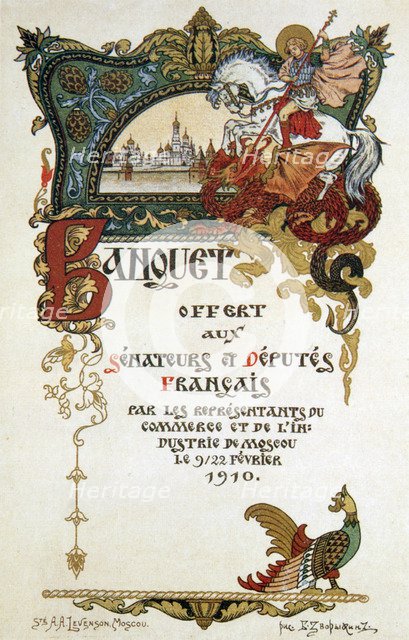 BANQUET
OFFERT
AUX
SÉNATEURS & DÉPUTÉS
FRANÇAIS
PAR LES REPRÉSENTANTS DU
COMMERCE ET DE L'IN=
DUSTRIE DE MOSCOU
LE 9/22 FÉVRIER
1910.
Sté A.A. LEVENSON, MOSCOU.
рис. Б. Зворыкинъ.
Heritage
Heritage
Heritage
Heritage
Heritage
Heritage